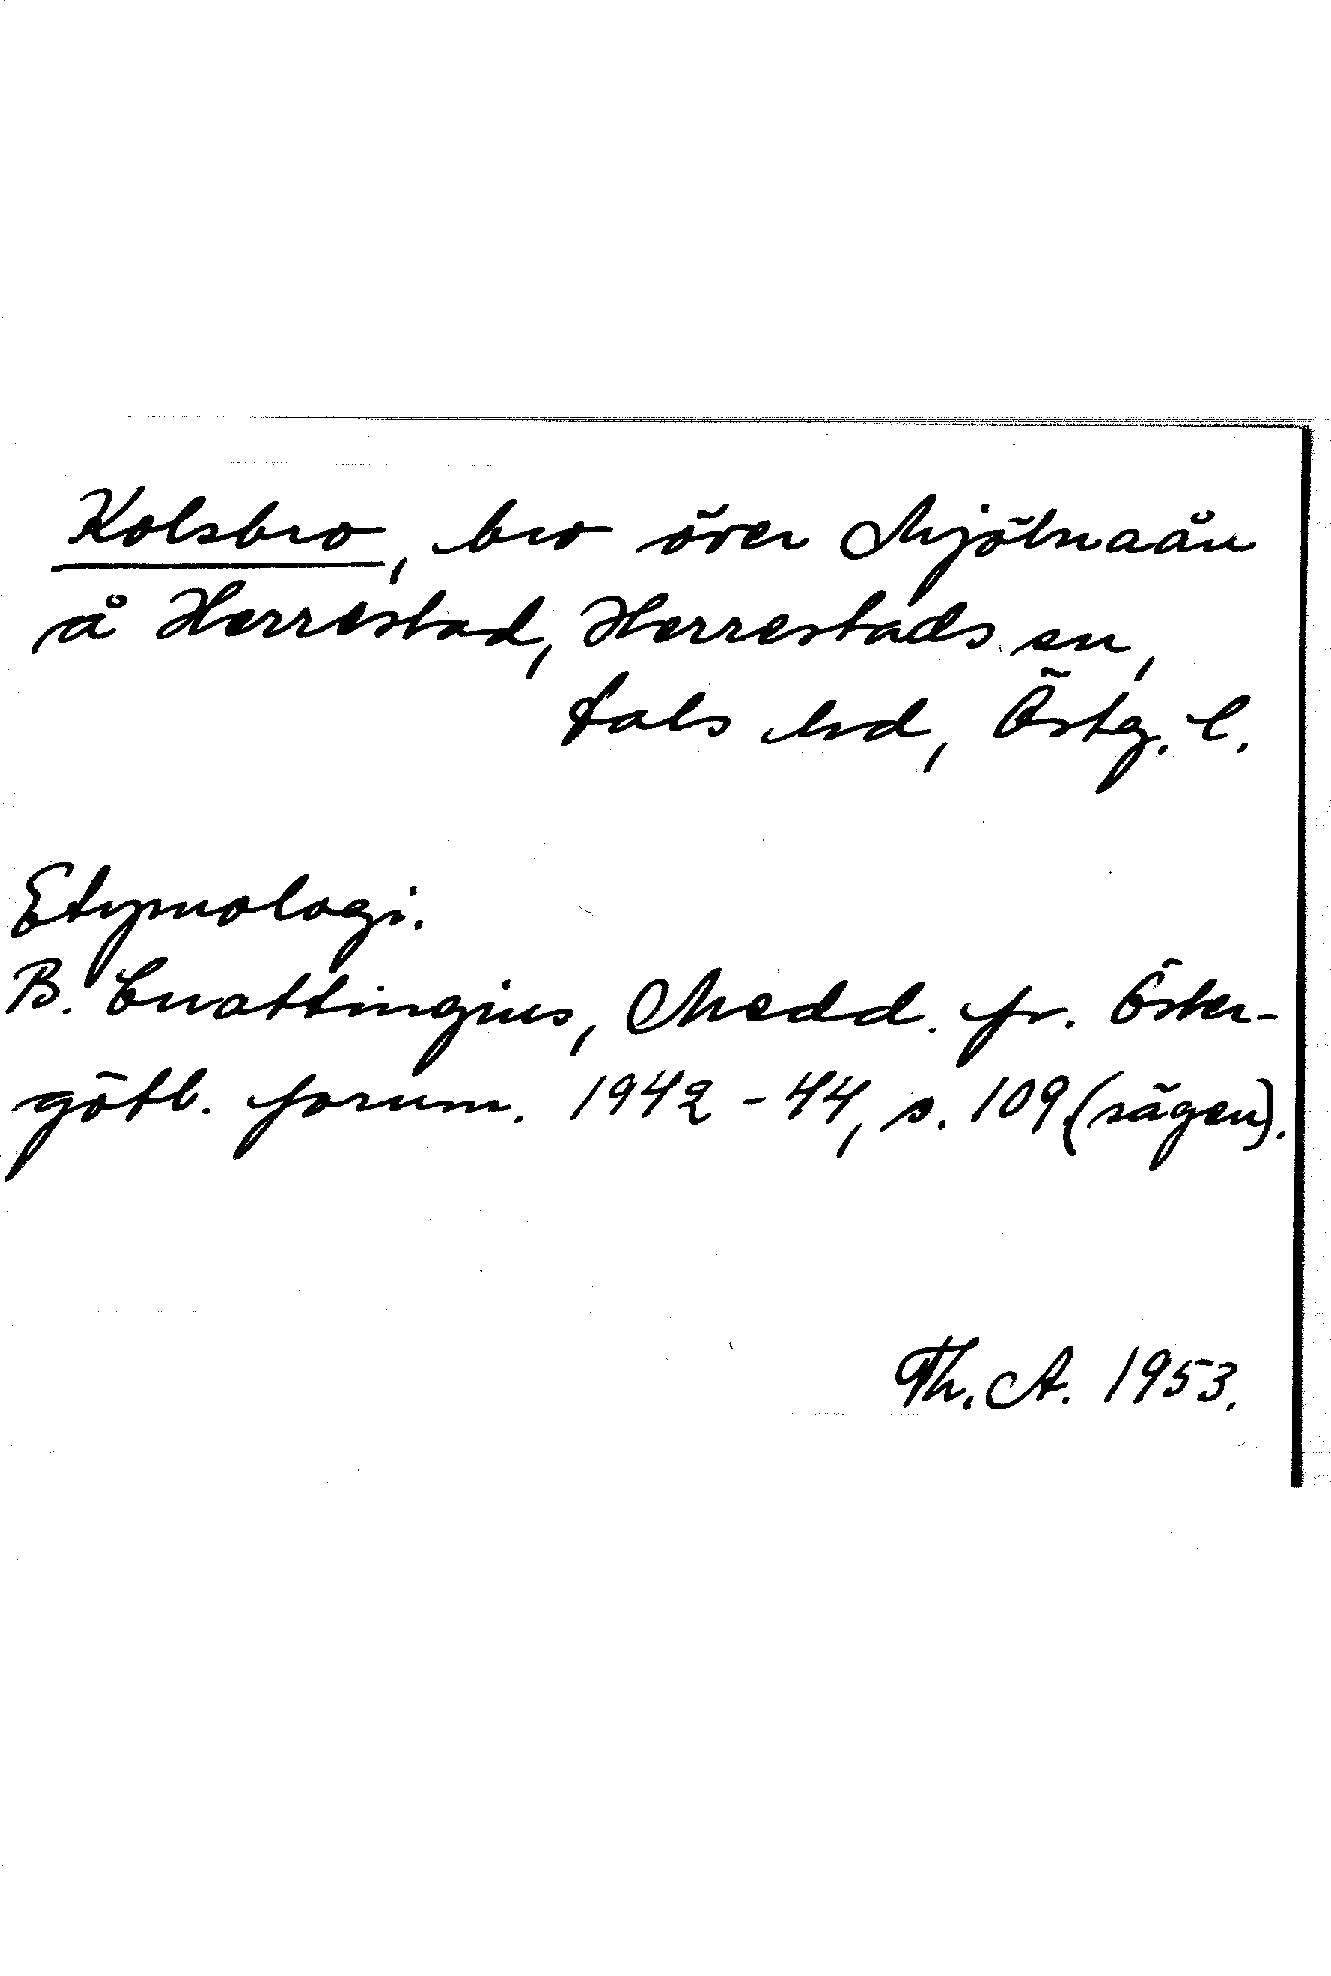 Kolsbro, bro över Mjölnaån
å Herrestad, Herrestads sn,
Dals hd, Östg. l.
Etymologi.
B. Cnattingius, Medd. fr. Öster-
götl. fornm. 1942-44, s. 109 (sägen).
Th. A. 1953.